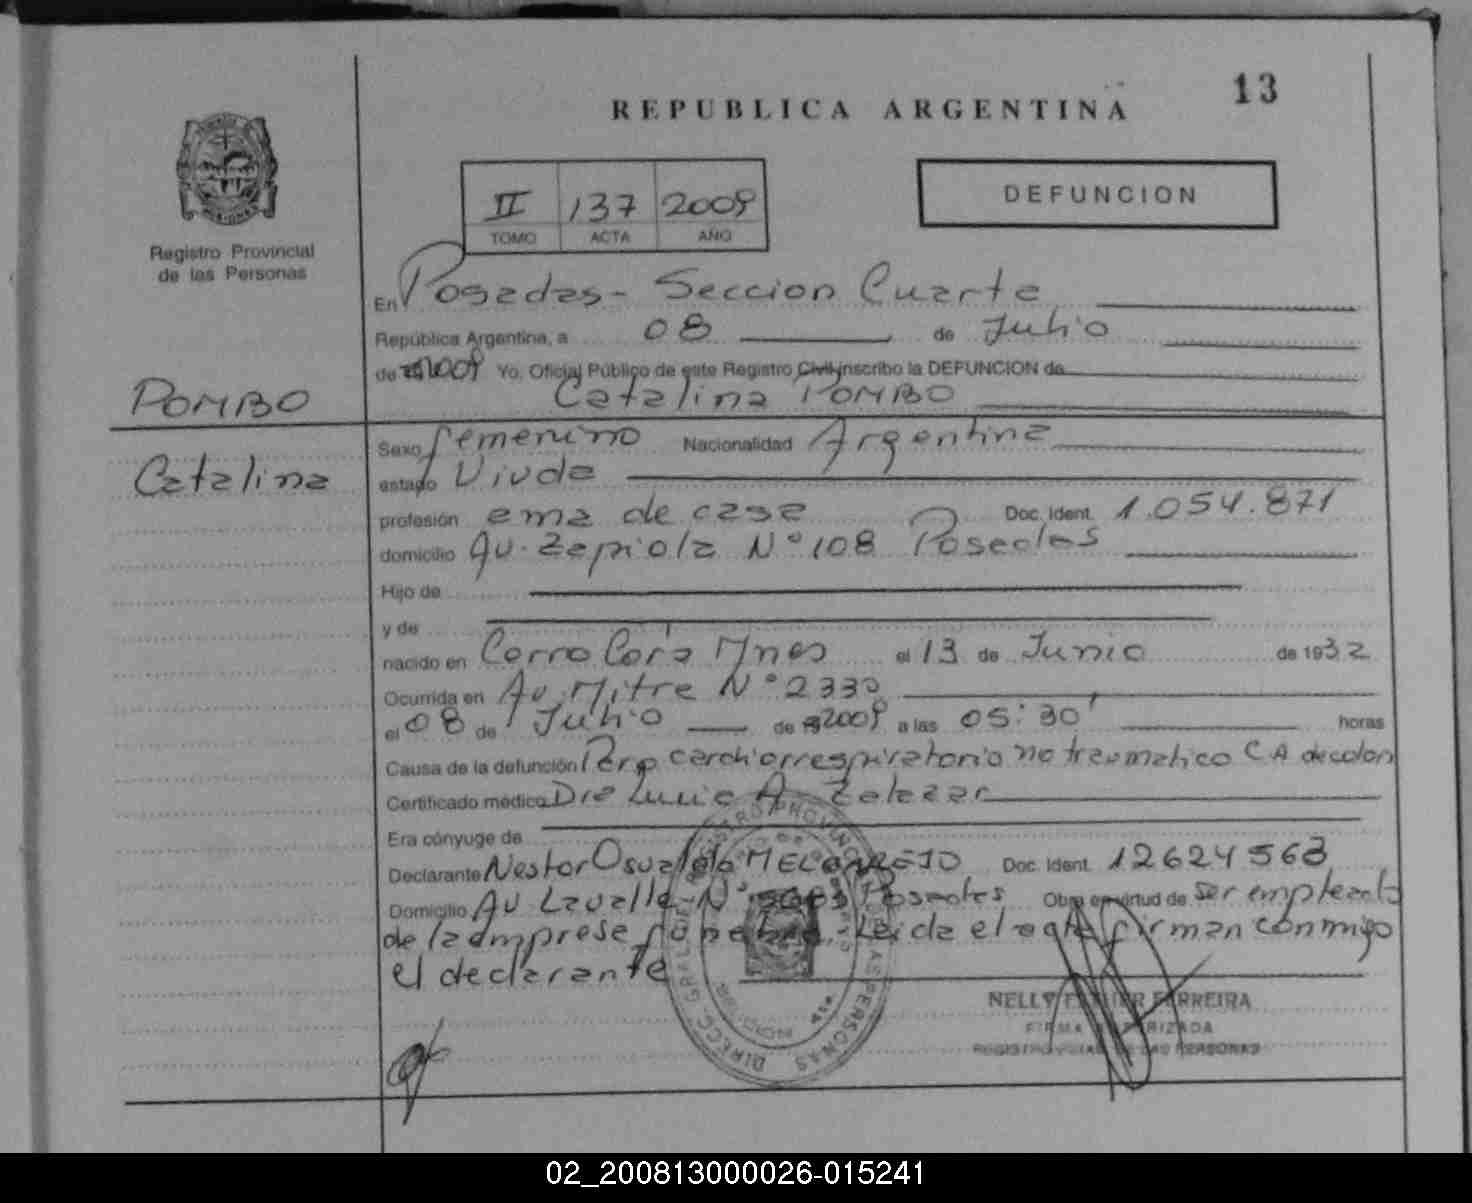 13
REPUBLICA ARGENTINA
II 137 2009
TOMO ACTA AÑO
DEFUNCION
Registro Provincial
de las Personas
En Posadas - Seccion Cuarta
República Argentina, a 08 de Julio
de 2009 Yo, Oficial Público de este Registro Civil inscribo la DEFUNCION de
POMBO
Catalina POMBO
Catalina
Sexo femenino Nacionalidad Argentina
estado Viuda
profesión ama de casa Doc. Ident. 1.054.871
domicilio Av. Zapiola N° 108 Posadas
Hijo de
y de
nacido en Cerro Cora Mnes el 13 de Junio de 1932
Ocurrida en Av. Mitre N° 2330
el 08 de Julio de 2009 a las 05:30' horas
Causa de la defunción Paro cardiorrespiratorio no traumatico CA de colon
Certificado médico Dra Lucia A. Zalazar
Era cónyuge de
Declarante Nestor Osvaldo Doc. Ident. 12624563
Domicilio Av Lavalle N° Posadas Obra en virtud de ser empleado
de la empresa Leida el acta firman conmigo
el declarante
NELLY ESTHER FERREIRA
FIRMA AUTORIZADA
REGISTRO DE LAS PERSONAS
02_200813000026-015241